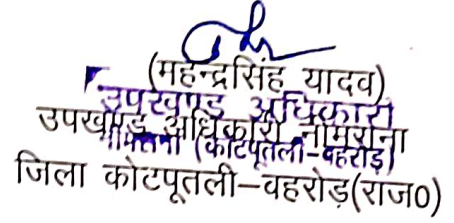 (महेन्द्रसिंह यादव)
उपखण्ड अधिकारी
उपखण्ड अधिकारी नीमराना
(कोटपूतली-बहरोड़)
जिला कोटपूतली-वहरोड़(राज0)